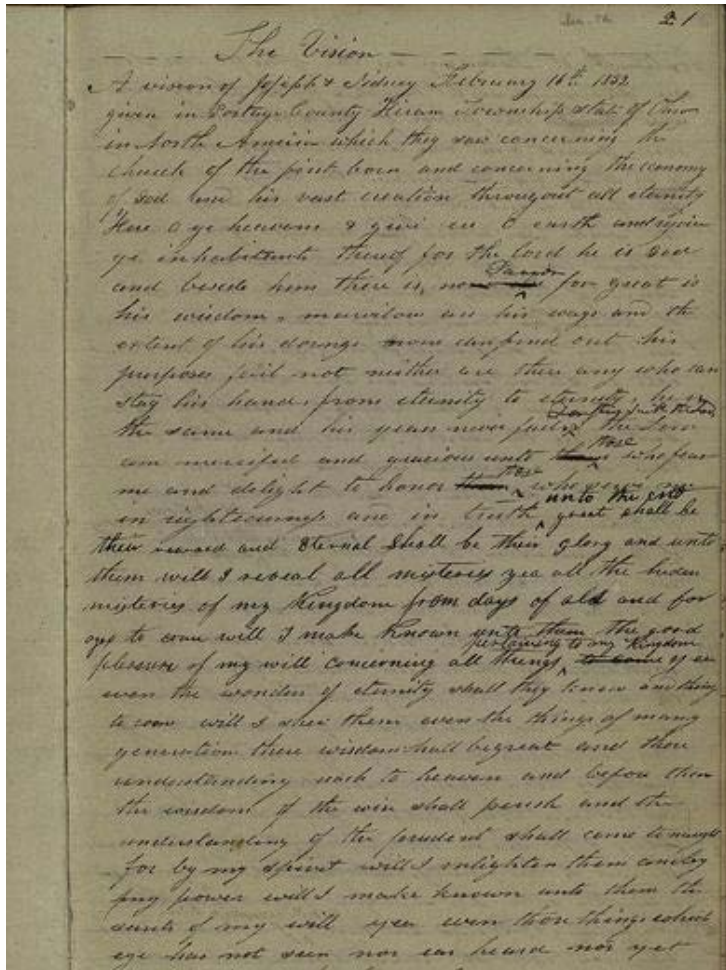 21
The Vision
A vision of Joseph & Sidney February 16th 1832
given in Portage County Hiram Township state of Ohio
in North America which they saw concerning the
church of the first born and concerning the economy
of God and his vast creation throughout all eternity
Here O ye heavens & give ear O earth and rejoice
ye inhabitants thereof for the lord he is God
and beside him there is none else
Savior
for great is
his wisdom marvilous are his ways and the
extent of his doings none can find out his
purposes fail not neither are there any who can
stay his hand from eternity to eternity he is
the same and his years never fail
for thus saith the Lord
the Lord
am merciful and gracious unto them
those
who fear
me and delight to honor them
those
who serve me
in righteousness and in truth
unto the end
great shall be
their reward and eternal shall be their glory and unto
them will I reveal all misteries yea all the hiden
misteries of my Kingdom from days of old and for
ages to come will I make known unto them the good
pleasure of my will concerning all things
pertaining to my Kingdom
to come yea
even the wonders of eternity shall they know and things
to come will I shew them even the things of many
generation there wisdom shall be great and there
understanding reach to heaven and before them
the wisdom of the wise shall perish and the
understanding of the prudent shall come to naught
for by my spirit will I enlighten them and by
my power will I make known unto them the
secrets of my will yea even those things which
eye has not seen nor ear heard nor yet